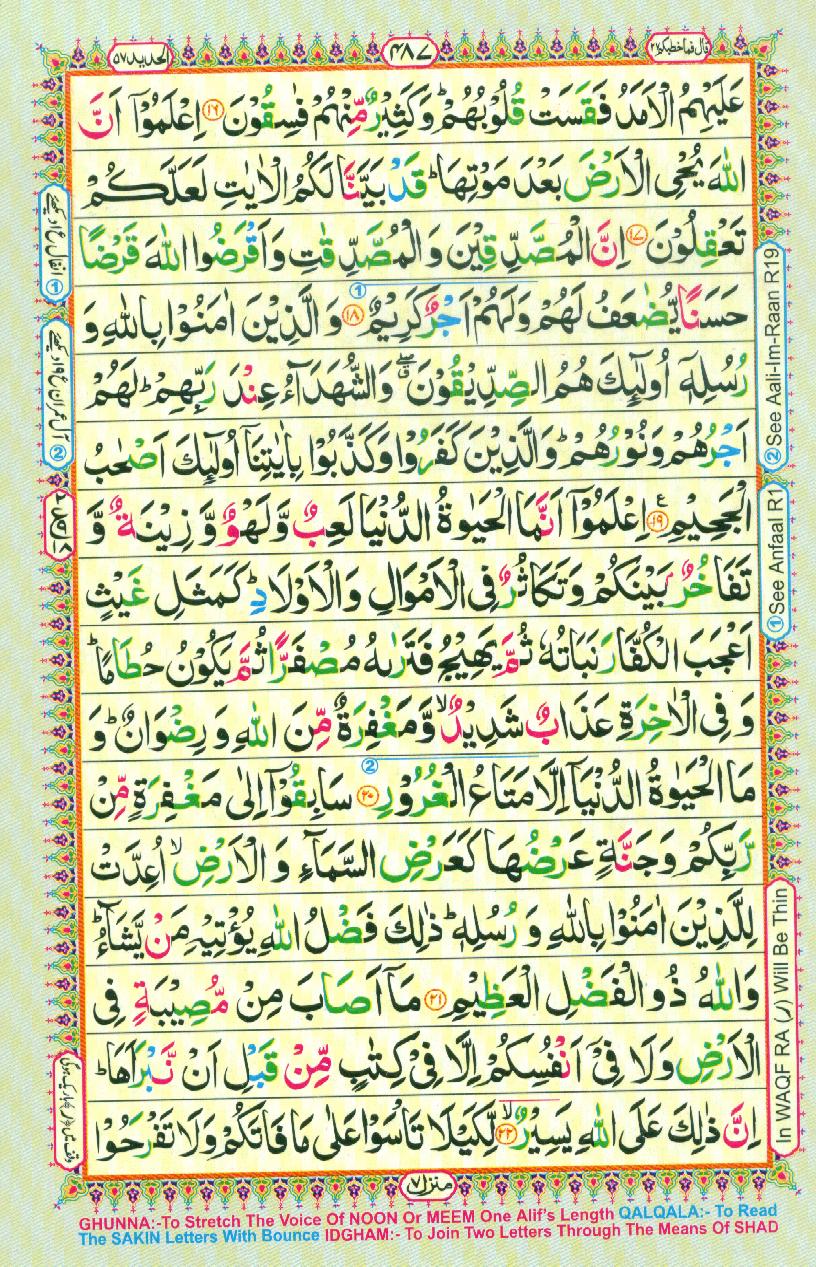 قال فما خطبكم ٢٧
٤٨٧
الحديد ٥٧
عَلَيْهِمُ الْاَمَدُ فَقَسَتْ قُلُوْبُهُمْ ؕ وَكَثِيْرٌ مِّنْهُمْ فٰسِقُوْنَ ﴿۱۶﴾ اِعْلَمُوْۤا اَنَّ
اللّٰهَ يُحْيِ الْاَرْضَ بَعْدَ مَوْتِهَا ؕ قَدْ بَيَّنَّا لَكُمُ الْاٰيٰتِ لَعَلَّكُمْ
تَعْقِلُوْنَ ﴿۱۷﴾ اِنَّ الْمُصَّدِّقِيْنَ وَالْمُصَّدِّقٰتِ وَاَقْرَضُوا اللّٰهَ قَرْضًا
حَسَنًا يُّضٰعَفُ لَهُمْ وَلَهُمْ اَجْرٌ كَرِيْمٌ ﴿۱۸﴾ وَالَّذِيْنَ اٰمَنُوْا بِاللّٰهِ وَ
رُسُلِهٖۤ اُولٰٓئِكَ هُمُ الصِّدِّيْقُوْنَ ۖ وَالشُّهَدَآءُ عِنْدَ رَبِّهِمْ ؕ لَهُمْ
اَجْرُهُمْ وَنُوْرُهُمْ ؕ وَالَّذِيْنَ كَفَرُوْا وَكَذَّبُوْا بِاٰيٰتِنَاۤ اُولٰٓئِكَ اَصْحٰبُ
الْجَحِيْمِ ﴿۱۹﴾ اِعْلَمُوْۤا اَنَّمَا الْحَيٰوةُ الدُّنْيَا لَعِبٌ وَّلَهْوٌ وَّزِيْنَةٌ وَّ
تَفَاخُرٌۢ بَيْنَكُمْ وَتَكَاثُرٌ فِى الْاَمْوَالِ وَالْاَوْلَادِ ؕ كَمَثَلِ غَيْثٍ
اَعْجَبَ الْكُفَّارَ نَبَاتُهٗ ثُمَّ يَهِيْجُ فَتَرٰىهُ مُصْفَرًّا ثُمَّ يَكُوْنُ حُطَامًا ؕ
وَفِى الْاٰخِرَةِ عَذَابٌ شَدِيْدٌ ۙ وَّمَغْفِرَةٌ مِّنَ اللّٰهِ وَرِضْوَانٌ ؕ وَ
مَا الْحَيٰوةُ الدُّنْيَاۤ اِلَّا مَتَاعُ الْغُرُوْرِ ﴿۲۰﴾ سَابِقُوْۤا اِلٰى مَغْفِرَةٍ مِّنْ
رَّبِّكُمْ وَجَنَّةٍ عَرْضُهَا كَعَرْضِ السَّمَآءِ وَالْاَرْضِ ۙ اُعِدَّتْ
لِلَّذِيْنَ اٰمَنُوْا بِاللّٰهِ وَرُسُلِهٖ ؕ ذٰلِكَ فَضْلُ اللّٰهِ يُؤْتِيْهِ مَنْ يَّشَآءُ ؕ
وَاللّٰهُ ذُو الْفَضْلِ الْعَظِيْمِ ﴿۲۱﴾ مَاۤ اَصَابَ مِنْ مُّصِيْبَةٍ فِى
الْاَرْضِ وَلَا فِىْۤ اَنْفُسِكُمْ اِلَّا فِىْ كِتٰبٍ مِّنْ قَبْلِ اَنْ نَّبْرَاَهَا ؕ
اِنَّ ذٰلِكَ عَلَى اللّٰهِ يَسِيْرٌ ﴿۲۲﴾ ۙ لِّكَيْلَا تَاْسَوْا عَلٰى مَا فَاتَكُمْ وَلَا تَفْرَحُوْا
② See Aali-Im-Raan R19
① See Anfaal R1
In WAQF RA (ر) Will Be Thin
① انفال ر ١ دیکھیے
② آل عمران ر ١٩ دیکھیے
منزل ٧
GHUNNA:-To Stretch The Voice Of NOON Or MEEM One Alif's Length QALQALA:- To Read
The SAKIN Letters With Bounce IDGHAM:- To Join Two Letters Through The Means Of SHAD